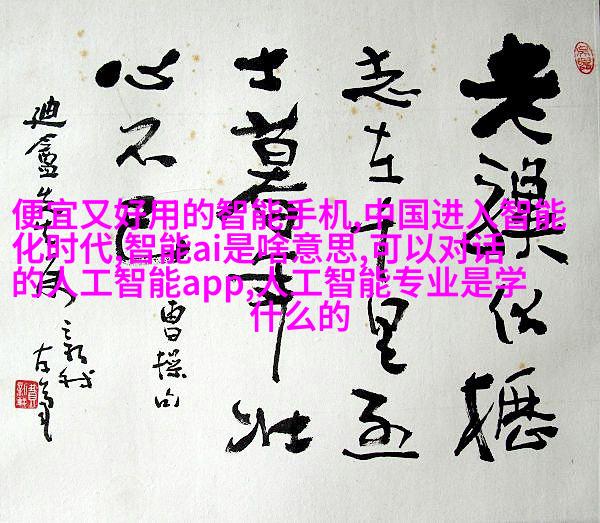 便宜又好用的智能手机,中国进入智能
化时代,智能ai是啥意思,可以对话
的人工智能app,人工智能专业是学
什么的
老驥伏櫪
志在千里烈
士暮年壮
心不已
曹操句